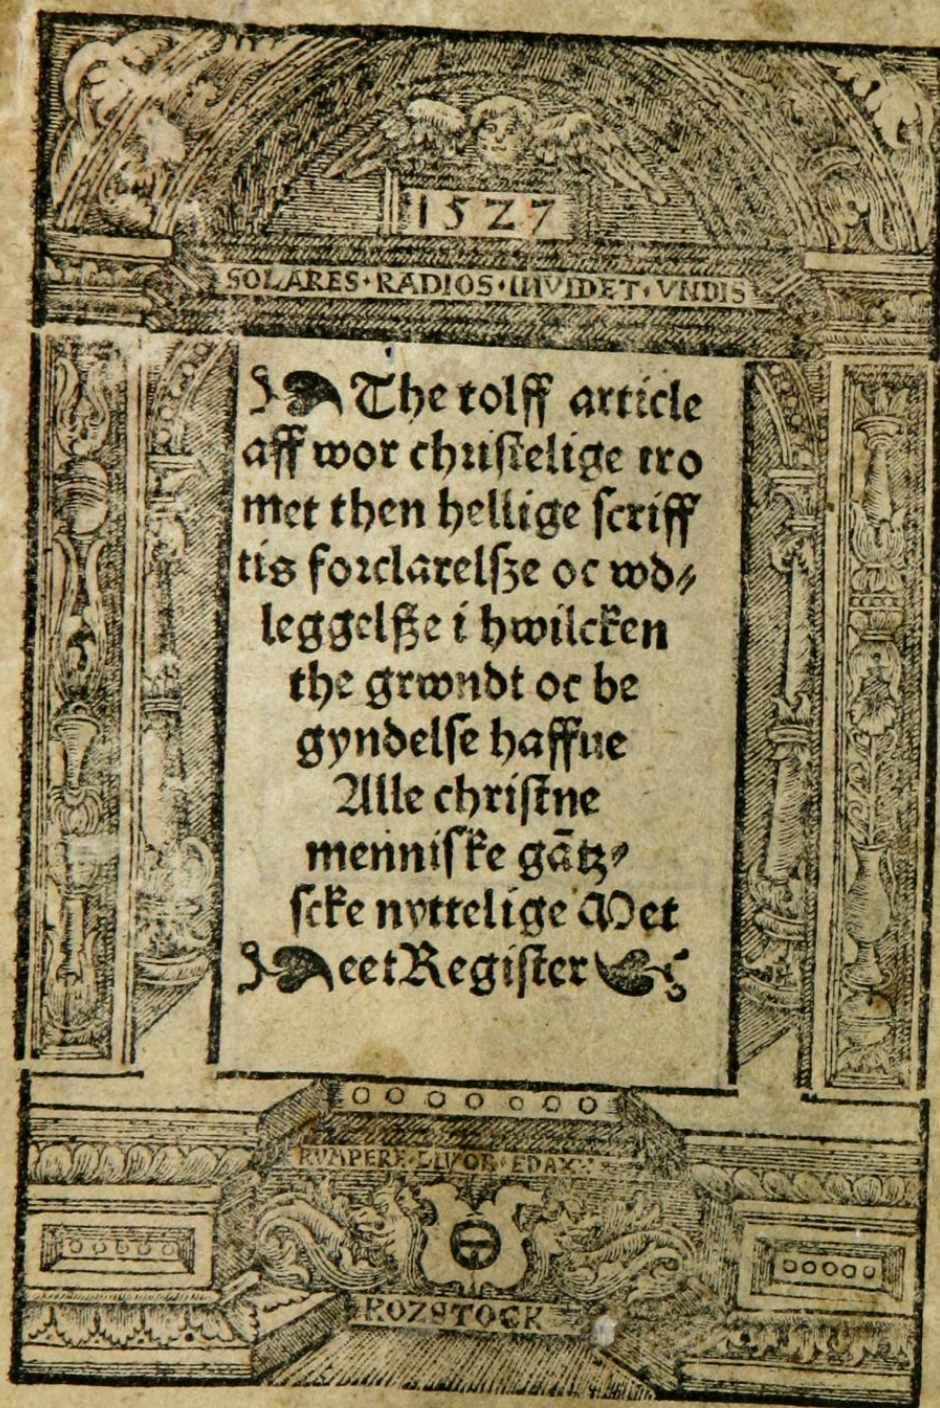 1527
SOLARES · RADIOS · INVIDET · VNDIS
The tolff article
aff wor christelige tro
met then hellige scriff
tis forclarelsze oc wd⸗
leggelsze i hwilcken
the grwndt oc be
gyndelse haffue
Alle christne
menniske gātz⸗
scke nyttelige Met
eet Register
RVMPERE · LIVOR · EDAX
ROZSTOCK